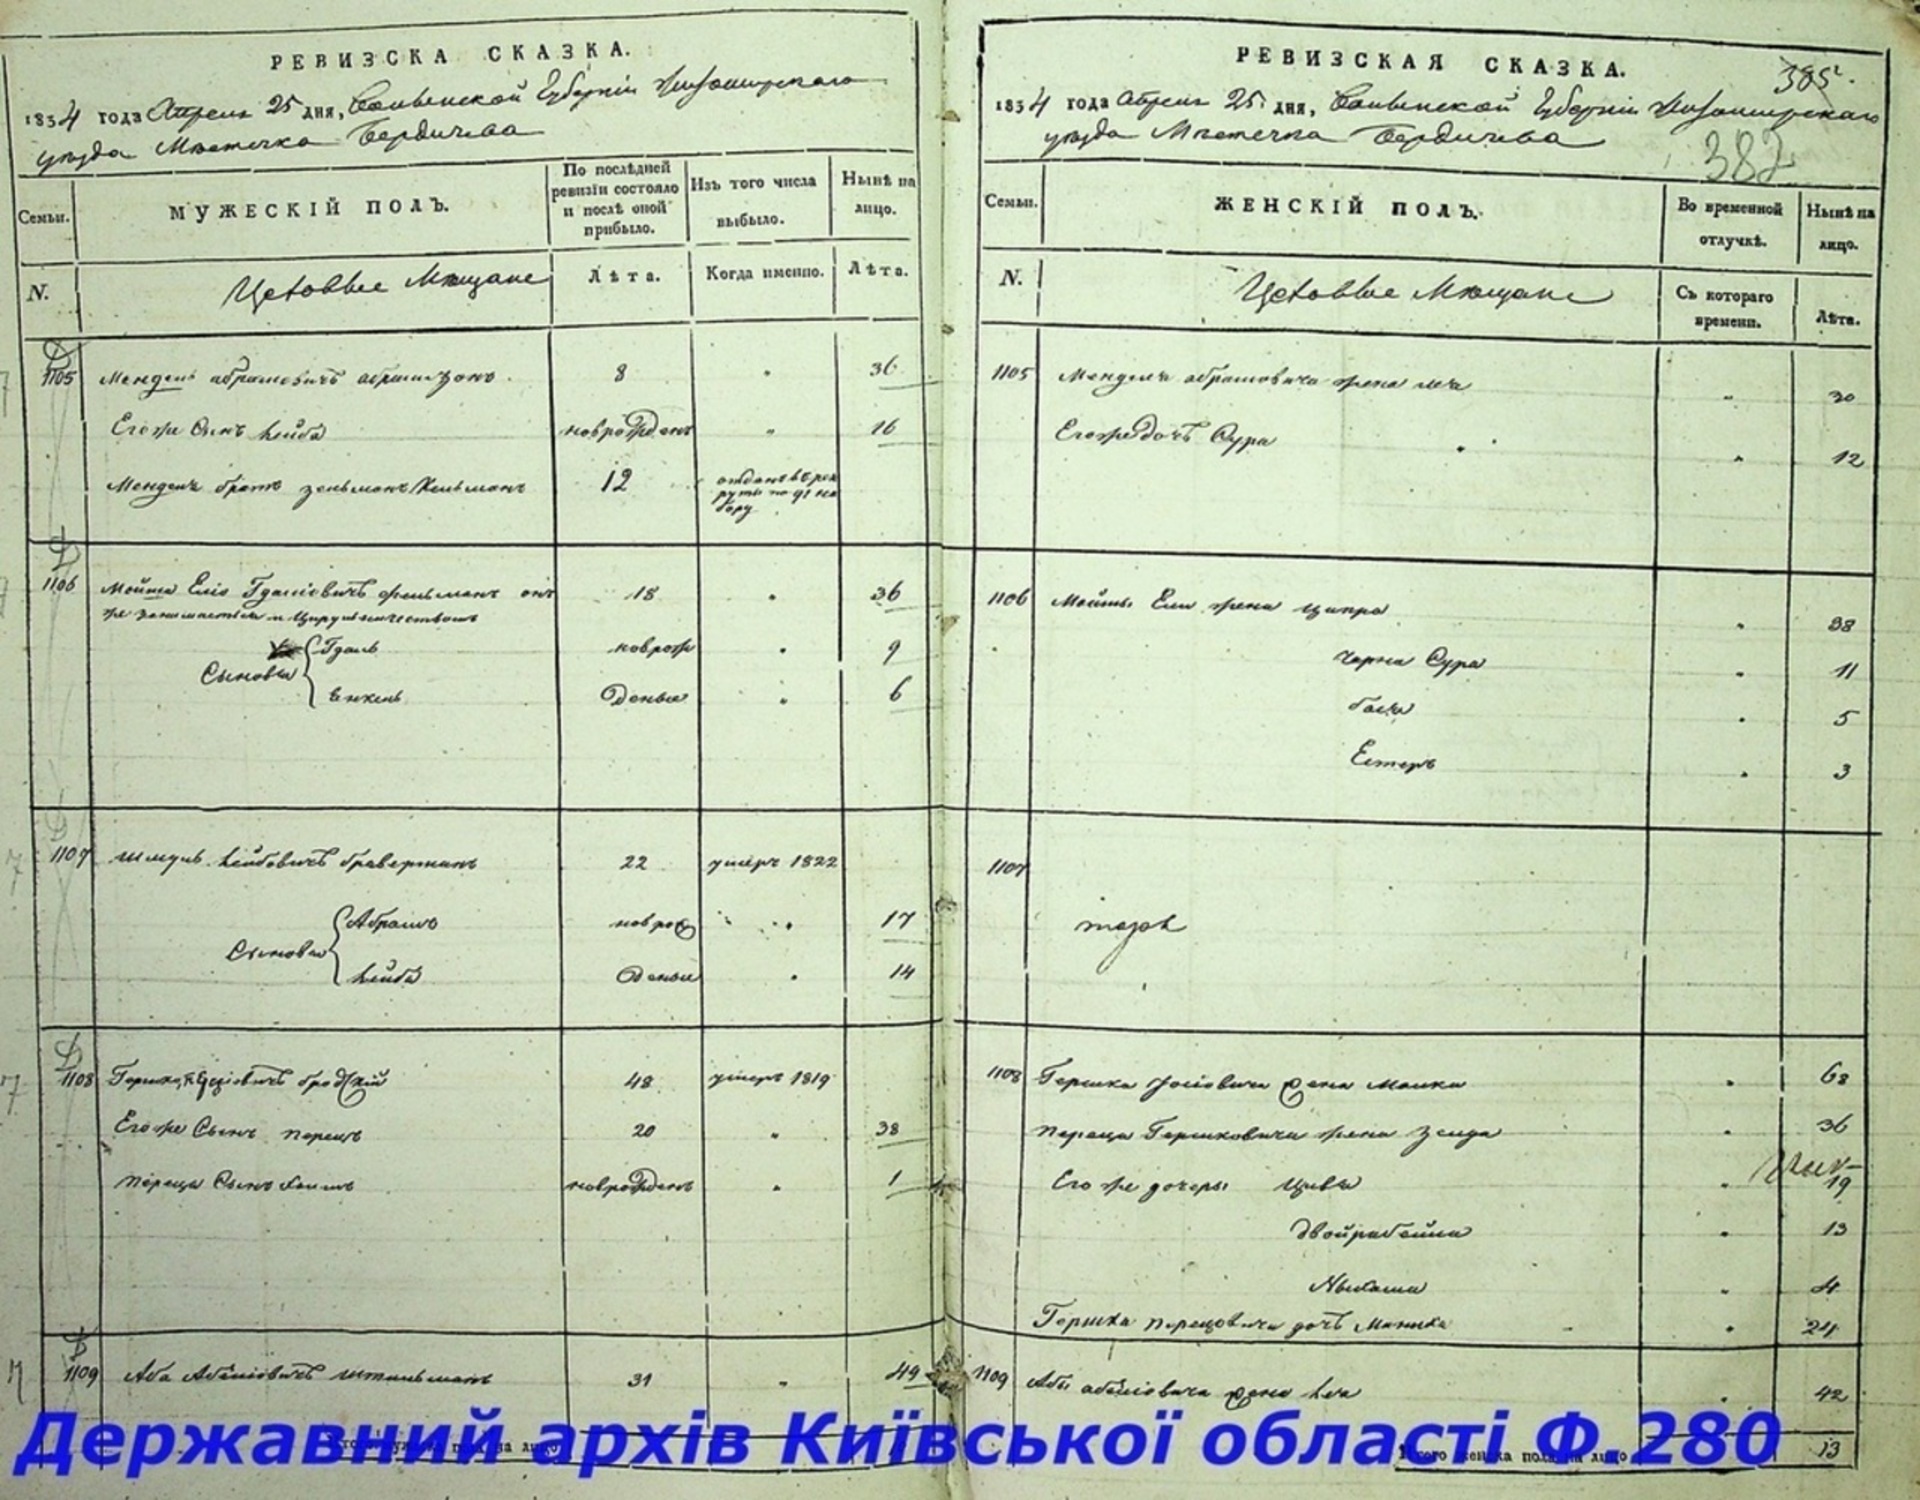 РЕВИЗСКА СКАЗКА.
1834 года Апреля 25 дня, Волынской Губернии Житомирского
уезда Местечка Бердичева
Семьи.
МУЖЕСКІЙ ПОЛЪ.
По послѣдней ревизіи состояло и послѣ оной прибыло.
Изъ того числа выбыло.
Нынѣ на лицо.
N.
Цеховые Мещане
Лѣта.
Когда именно.
Лѣта.
1105 Мендель Абрамовичъ Абрамзонъ 8 " 36
Его же Сынъ Лейба новорожденъ " 16
Менделя братъ Зельманъ 12 отданъ въ рекруты по 91 набору
1106 Мойша Еліо Гдаліовичъ Фельманъ онъ 18 " 36
же занимается и Цирульничествомъ
Сыновья
Гдаль новорож " 9
Енкель Денные " 6
1107 Шмуль Лейбовичъ Браверманъ 22 умеръ 1822
Сыновья
Абрамъ новорож " 17
Лейба Денные " 14
1108 Бродскій 48 умеръ 1819
Его же Сынъ Перецъ 20 " 38
Переца Сынъ Хаимъ новорожденъ " 1
1109 Аба 31 " 49
РЕВИЗСКАЯ СКАЗКА.
385
1834 года Апреля 25 дня, Волынской Губерніи Житомирскаго
уезда Местечка Бердичева
382
Семьи.
ЖЕНСКІЙ ПОЛЪ.
Во временной отлучкѣ.
Нынѣ на лицо.
N.
Цеховые Мещане
Съ котораго времени.
Лѣта.
1105 Менделя Абрамовича жена Леа " 30
Его же дочь Сура " 12
1106 Мойши Ели жена Ципра " 38
Черна Сура " 11
Бася " 5
Естеръ " 3
1107
1108 Гершка жена Малка " 68
Переца Гершковича жена Зелда " 36
Его же дочери Цивья " 19
Двойрабейла " 13
" 4
Гершка Перецовича дочь " 24
1109 Абы жена Леа " 42
женска пола на лицо 13
Державний архів Київської області Ф.280